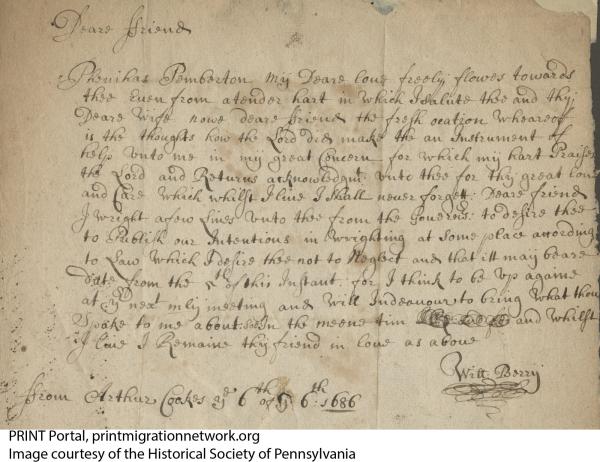 Deare ffriend
Phenihas Pemberton my Deare love freely flowes towards
thee Even from a tender hart in which I salute thee and thy
Deare Wife nowe deare ffriend the fresh ocation wheareof
is the thoughts how the Lord did make the an Instrument of
help unto me in my great Concern for which my hart Praises
the Lord and Returns acknowledgmt unto thee for thy great love
and Care which whilst I live I shall never forgett: Deare friend
I wright a few lines unto thee from the to desire thee
to Publish our Intentions in wrighting at some place according
to Law which I desire thee not to Neglect and that itt may beare
date from the of this Instant: for I think to be up againe
at ye next mly meeting and will Indeavour to bring what thou
spake to me about: In the meene tim and whilst
I live I Remaine thy friend in love as above
Will Berry
ffrom Arthur Cookes ye 6th of ye 6th: 1686
PRINT Portal, printmigrationnetwork.org
Image courtesy of the Historical Society of Pennsylvania